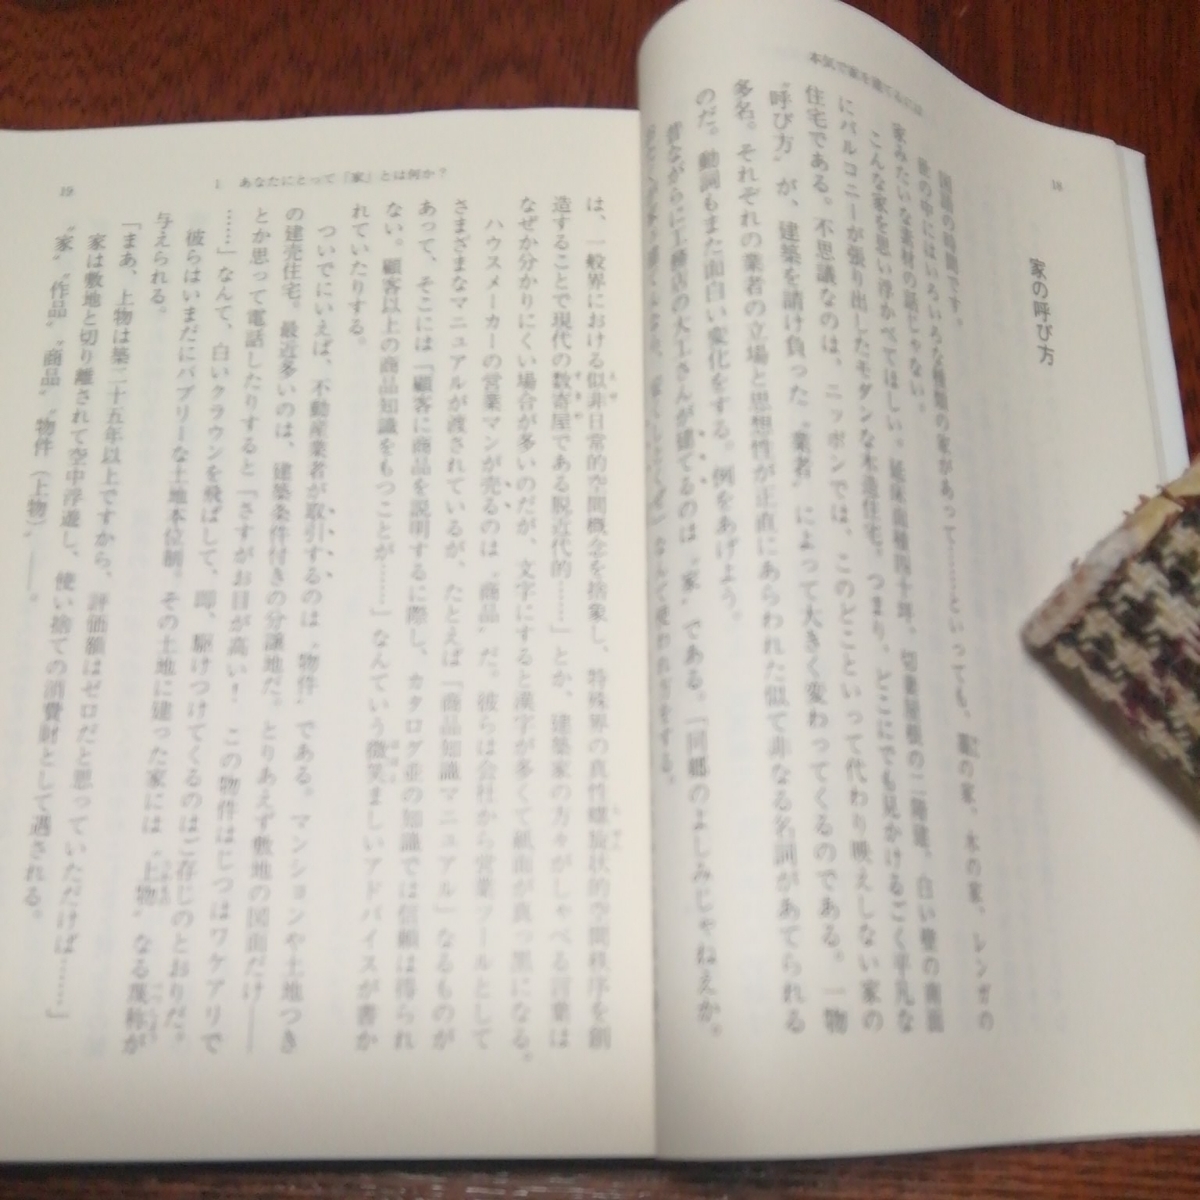 18
本気で家を建てるには
家の呼び方
国語の時間です。
世の中にはいろいろな種類の家があって……といっても、藁の家、木の家、レンガの
家みたいな素材の話じゃない。
こんな家を思い浮かべてほしい。延床面積四十坪。切妻屋根の二階建。白い壁の南面
にバルコニーが張り出したモダンな木造住宅。つまり、どこにでも見かけるごく平凡な
住宅である。不思議なのは、ニッポンでは、このどこといって代わり映えしない家の
〝呼び方〟が、建築を請け負った〝業者〟によって大きく変わってくるのである。一物
多名。それぞれの業者の立場と思想性が正直にあらわれた似て非なる名詞があてられる
のだ。動詞もまた面白い変化をする。例をあげよう。
昔ながらに工務店の大工さんが建てるのは〝家〟である。「同郷のよしみじゃねえか。
なんて使われ方をする。
は、一般界における似非日常的空間概念を捨象し、特殊界の真性螺旋状的空間秩序を創
造することで現代の数寄屋である脱近代的……」とか、建築家の方々がしゃべる言葉は
なぜか分かりにくい場合が多いのだが、文字にすると漢字が多くて紙面が真っ黒になる。
ハウスメーカーの営業マンが売るのは〝商品〟だ。彼らは会社から営業ツールとして
さまざまなマニュアルが渡されているが、たとえば「商品知識マニュアル」なるものが
あって、そこには「顧客に商品を説明するに際し、カタログ並の知識では信頼は得られ
ない。顧客以上の商品知識をもつことが……」なんていう微笑ましいアドバイスが書か
れていたりする。
ついでにいえば、不動産業者が取引するのは〝物件〟である。マンションや土地つき
の建売住宅。最近多いのは、建築条件付きの分譲地だ。とりあえず敷地の図面だけ——
とか思って電話したりすると「さすがお目が高い！　この物件はじつはワケアリで
……」なんて、白いクラウンを飛ばして、即、駆けつけてくるのはご存じのとおりだ。
彼らはいまだにバブリーな土地本位制。その土地に建った家には〝上物〟なる蔑称が
与えられる。
「まあ、上物は築二十五年以上ですから、評価額はゼロだと思っていただけば……」
家は敷地と切り離されて空中浮遊し、使い捨ての消費財として遇される。
〝家〟〝作品〟〝商品〟〝物件（上物）〟——。
1　あなたにとって「家」とは何か？
19